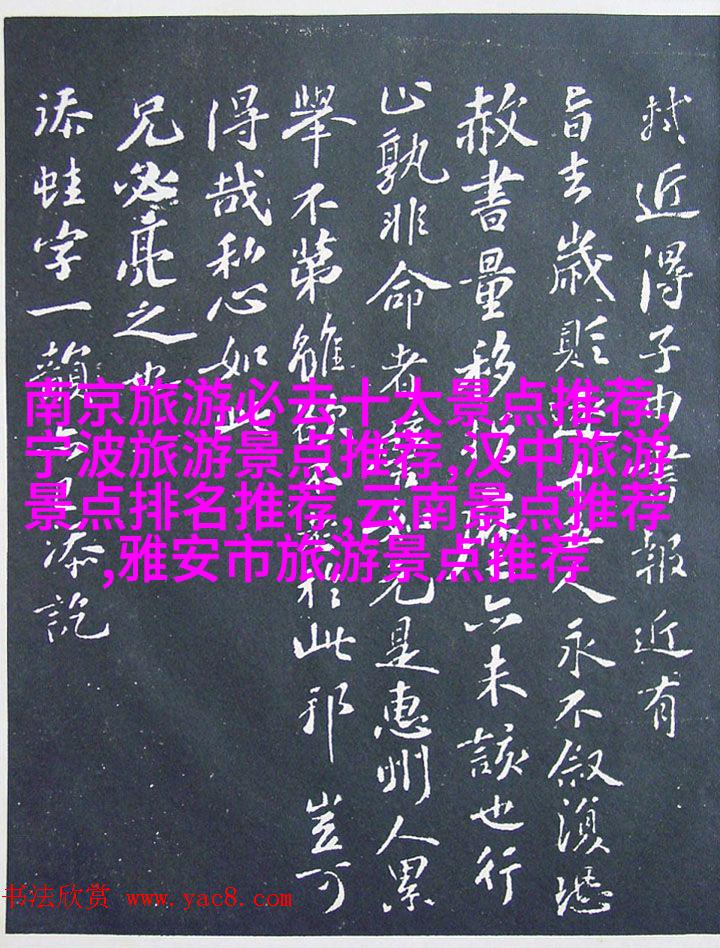 軾近得子由書報近有
旨去歲貶人永不叙恐
赦書量移未該也行
止孰非命者元是惠州人累
舉不第雖此邪豈可
得哉私心如此
兄必亮之也
添蛙字一韻添訖
南京旅游必去十大景点推荐,
宁波旅游景点推荐,汉中旅游
景点排名推荐,云南景点推荐
,雅安市旅游景点推荐
书法欣赏 www.yac8.com